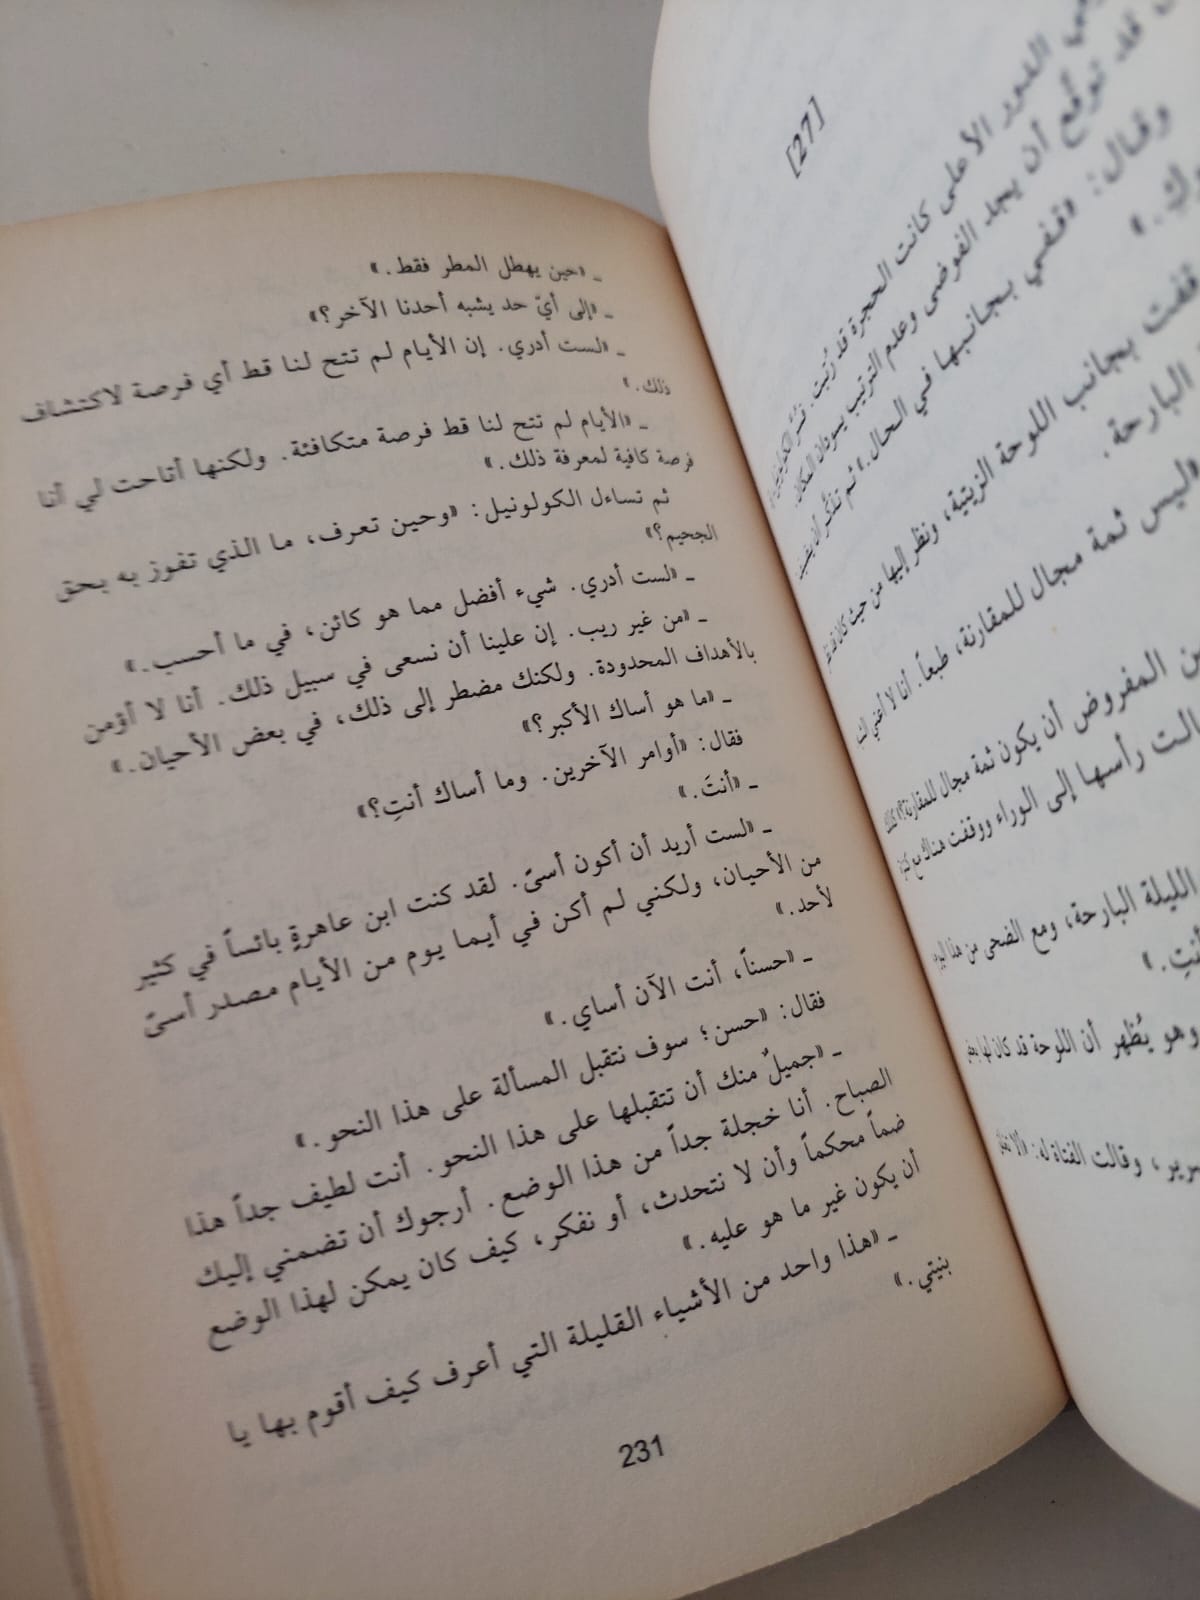 [27]
الدور الأعلى كانت الحجرة قد رُتبت.
قد توقّع أن يجد الفوضى وعدم الترتيب يسودان المكان.
وقال: «قفي بجانبها في الحال.» ثم تذكّر أن
بجانب اللوحة الزيتية، ونظر إليها من حيث كان
البارحة.
«ليس ثمة مجال للمقارنة، طبعاً. أنا لا أعني
المفروض أن يكون ثمة مجال للمقارنة؟»
رأسها إلى الوراء ووقفت هناك
الليلة البارحة، ومع الضحى من هذا اليوم
أنتِ.»
وهو يُظهر أن اللوحة قد كان لها
وقالت الفتاة له: «ألا
ـ «حين يهطل المطر فقط.»
ـ «إلى أيّ حد يشبه أحدنا الآخر؟»
ـ «لست أدري. إن الأيام لم تتح لنا قط أي فرصة لاكتشاف
ذلك.»
ـ «الأيام لم تتح لنا قط فرصة متكافئة. ولكنها أتاحت لي أنا
فرصة كافية لمعرفة ذلك.»
ثم تساءل الكولونيل: «وحين تعرف، ما الذي تفوز به بحق
الجحيم؟»
ـ «لست أدري. شيء أفضل مما هو كائن، في ما أحسب.»
ـ «من غير ريب. إن علينا أن نسعى في سبيل ذلك. أنا لا أؤمن
بالأهداف المحدودة. ولكنك مضطر إلى ذلك، في بعض الأحيان.»
ـ «ما هو أساك الأكبر؟»
فقال: «أوامر الآخرين. وما أساك أنتِ؟»
ـ «أنتَ.»
ـ «لست أريد أن أكون أسىً. لقد كنت ابن عاهرةٍ بائساً في كثير
من الأحيان، ولكني لم أكن في أيما يوم من الأيام مصدر أسىً
لأحد.»
ـ «حسناً، أنت الآن أساي.»
فقال: «حسن؛ سوف نتقبل المسألة على هذا النحو.»
ـ «جميلٌ منك أن تتقبلها على هذا النحو. أنت لطيف جداً هذا
الصباح. أنا خجلة جداً من هذا الوضع. أرجوك أن تضمني إليك
ضماً محكماً وأن لا نتحدث، أو نفكر، كيف كان يمكن لهذا الوضع
أن يكون غير ما هو عليه.»
ـ «هذا واحد من الأشياء القليلة التي أعرف كيف أقوم بها يا
بنيتي.»
231